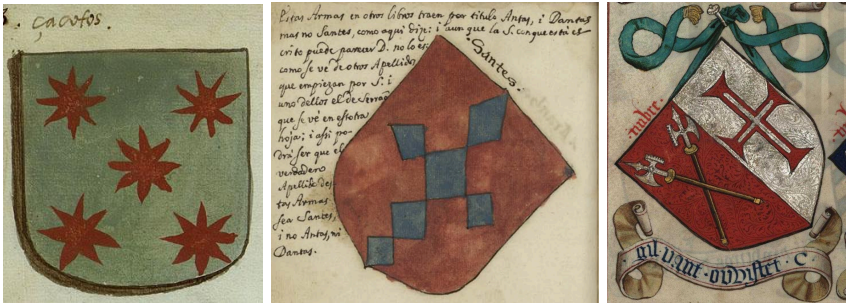 çacotos.
Estas Armas en otros libros traen por titulo Antas, i Dantas
mas no Santes, como aqui dize: i aun que la S. con que está es-
crito puede parecer D. no lo es:
como se vè de otros Apellidos
que empiezan por S. i
uno dellos el de Serrão
que se vè en esotra
hoja; i assi po-
drá ser que el
verdadero
Apellido des-
tas Armas
sea Santes,
i no Antas, ni
Dantas.
Santes.